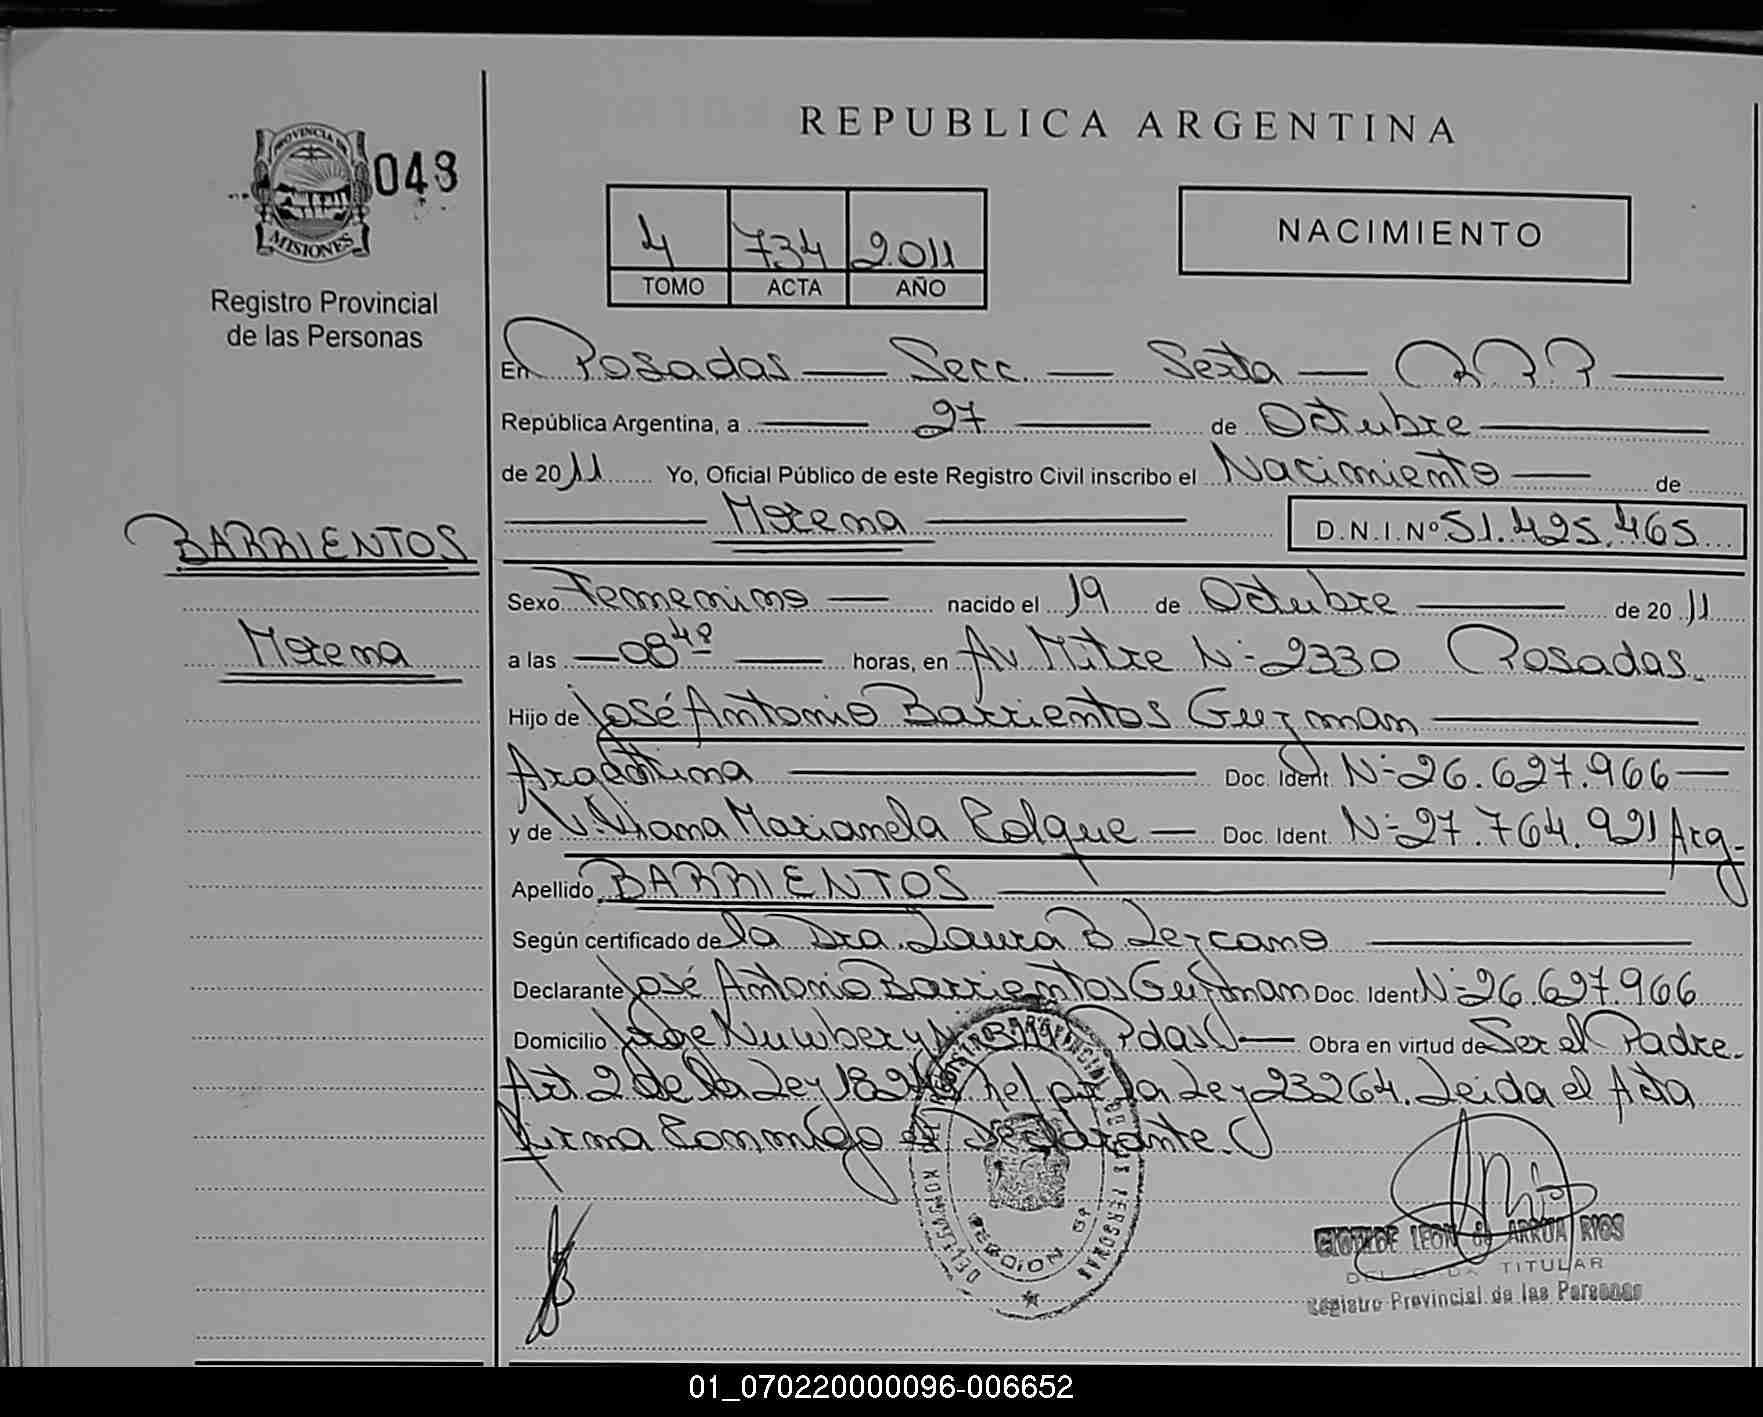 REPUBLICA ARGENTINA
PROVINCIA DE
MISIONES
043
Registro Provincial
de las Personas
4 734 2.011
TOMO ACTA AÑO
NACIMIENTO
En Posadas — Secc. — Sexta —
República Argentina, a — 27 — de Octubre —
de 2011 Yo, Oficial Público de este Registro Civil inscribo el Nacimiento — de
— Morena — D.N.I.Nº 51.425.465
BARRIENTOS
Morena
Sexo Femenino — nacido el 19 de Octubre — de 2011
a las — 08 48 — horas, en Av. Mitre Nº 2330 Posadas.
Hijo de José Antonio Barrientos Guzman —
Argentina — Doc. Ident. Nº 26.627.966 —
y de Viviana Marianela Colque — Doc. Ident. Nº 27.764.921 Arg.
Apellido BARRIENTOS —
Según certificado de la Dra. Laura B Lezcano —
Declarante José Antonio Barrientos Guzman Doc. Ident Nº 26.627.966
Domicilio Jorge Newbery Pdas — Obra en virtud de Ser el Padre.
Art 2 de la Ley por la Ley 23264. Leida el Acta
Firma Conmigo el Declarante.
DELEGACION REGISTRO PROVINCIAL DE LAS PERSONAS
SECCION 6ª
CLOTILDE LEON de ARRUA RIOS
DELEGADA TITULAR
Registro Provincial de las Personas
01_070220000096-006652